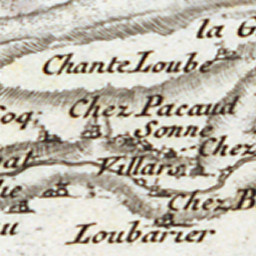 la G
Chante Loube
Coq
Chez Pacaud
Sonne
Chez
Villars
Chez B
Loubarier